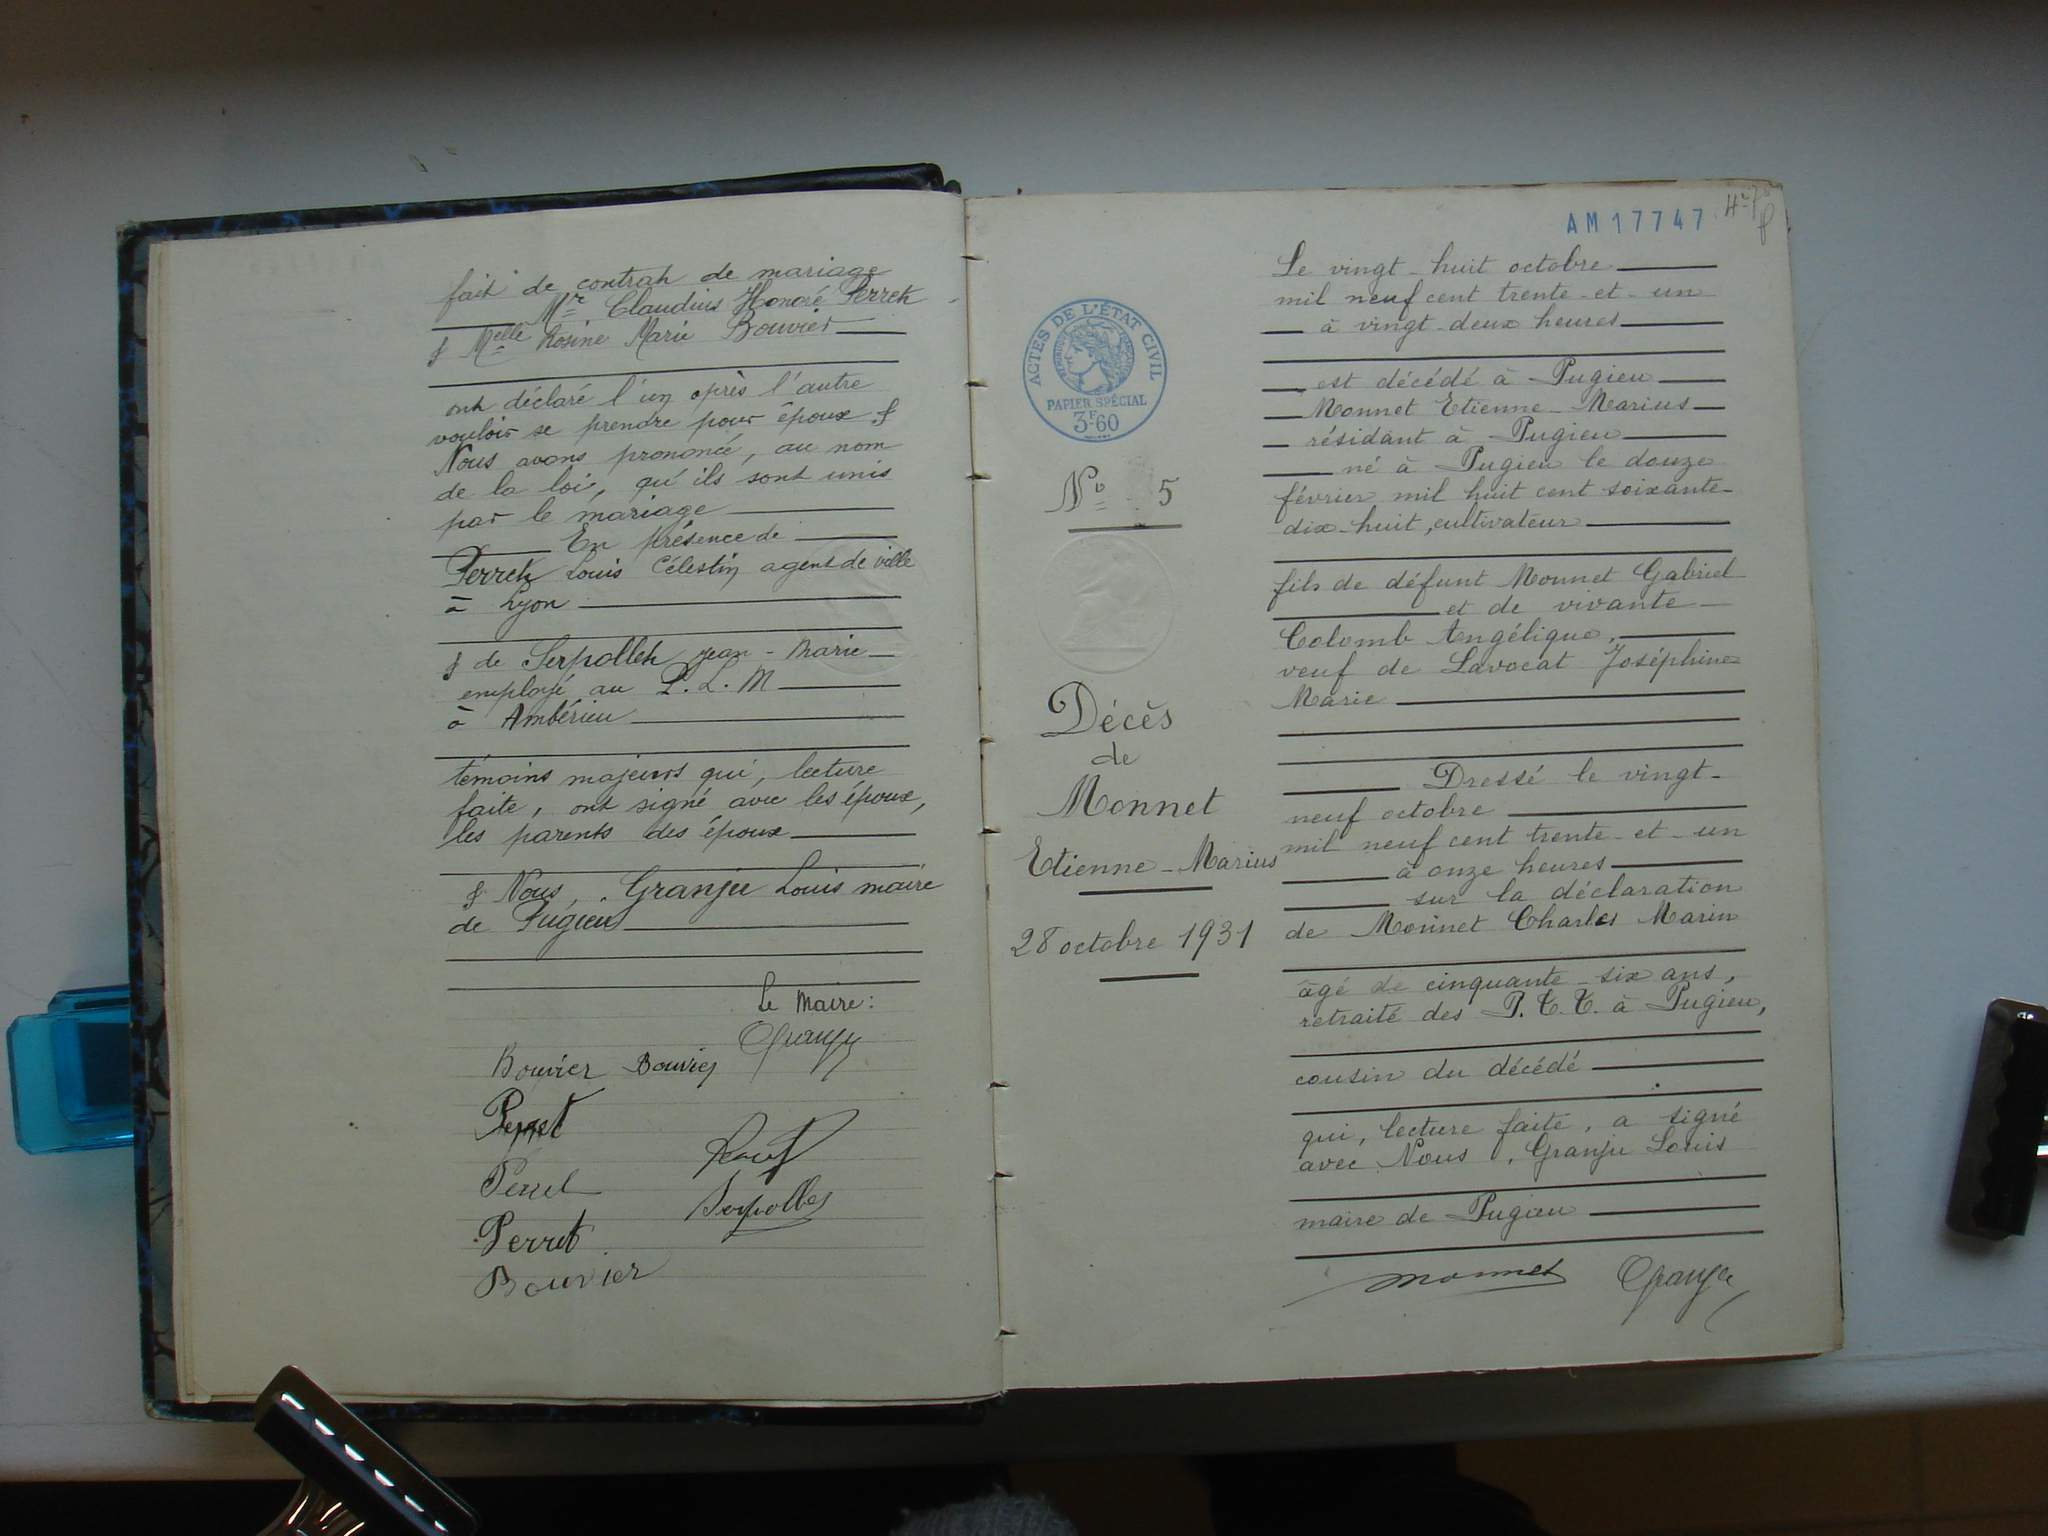 fait de contrat de mariage
Mr Claudius Honoré Perret
& Melle Rosine Marie Bouvier
ont déclaré l'un après l'autre
vouloir se prendre pour époux &
Nous avons prononcé, au nom
de la loi, qu'ils sont unis
par le mariage
En présence de
Perret Louis Célestin agent de ville
à Lyon
& de Serpollet Jean-Marie
employé au P.L.M
à Ambérieu
témoins majeurs qui, lecture
faite, ont signé avec les époux,
les parents des époux
& Nous, Granju Louis maire
de Pugieu
Le Maire:
Granju
Bouvier Bouvier
Perret
Perret
Serpollet
Perret
Bouvier
AM17747
ACTES DE L'ÉTAT CIVIL
RÉPUBLIQUE FRANÇAISE
PAPIER SPÉCIAL
3F60
No 5
Décès
de
Monnet
Etienne-Marius
28 octobre 1931
Le vingt-huit octobre
mil neuf cent trente-et-un
à vingt-deux heures
est décédé à Pugieu
Monnet Etienne-Marius
résidant à Pugieu
né à Pugieu le douze
février mil huit cent soixante-
dix-huit, cultivateur
fils de défunt Monnet Gabriel
et de vivante
Colomb Angélique,
veuf de Lavocat Joséphine
Marie
Dressé le vingt-
neuf octobre
mil neuf cent trente-et-un
à onze heures
sur la déclaration
de Monnet Charles Marin
âgé de cinquante-six ans,
retraité des P.T.T. à Pugieu,
cousin du décédé
qui, lecture faite, a signé
avec Nous, Granju Louis
maire de Pugieu
Monnet Granju